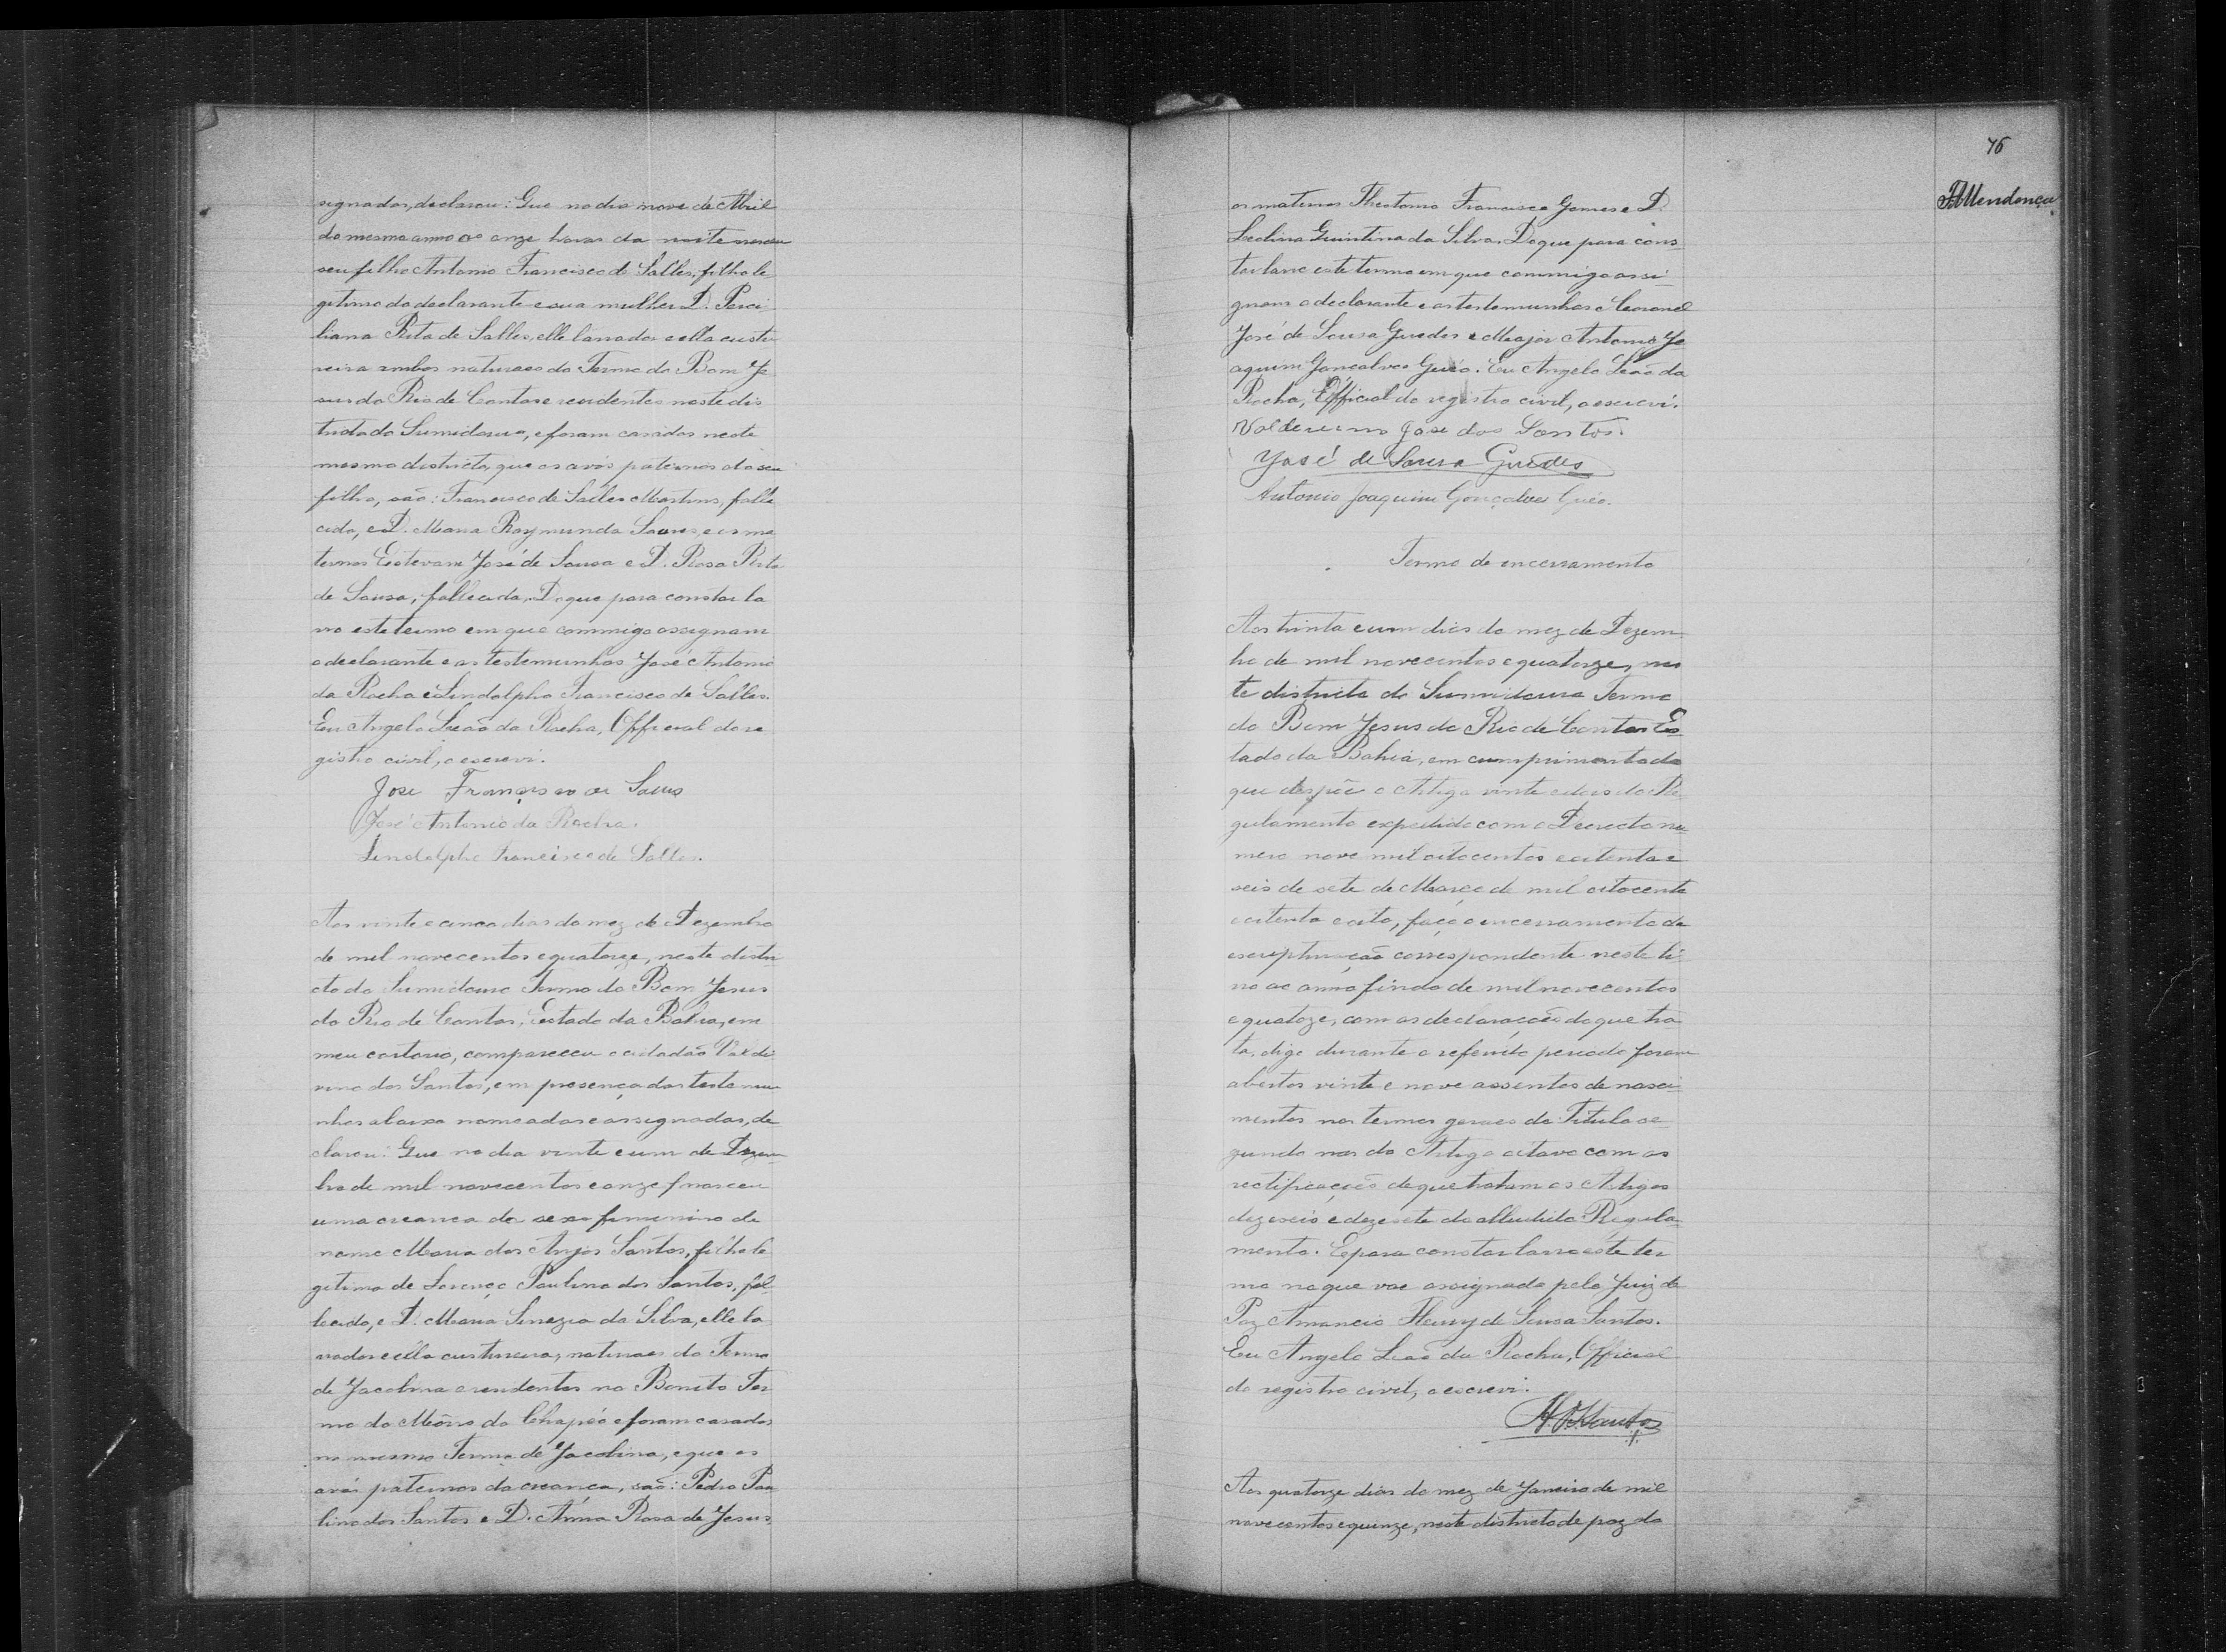 signados, declarou: Que no dia nove de Abril
do mesmo anno as onze horas da noite nasceu
seu filho Antonio Francisco de Salles, filho le
gitimo do declarante e sua mulher D. Perci
liana Rita de Salles, elle lavrador e ella custu
reira ambos naturaes do Termo do Bom Je
sus do Rio de Contas e residentes neste dis
tricto do Sumidouro, e foram casados neste
mesmo districto, que os avós paternos do seu
filho, são: Francisco de Salles Martins, falle
cido, e D. Maria Raymunda e os ma
ternos Estevam José de Sousa e D. Rosa Rita
de Sousa, fallecida. Do que para constar la
vro este termo em que commigo assignam
o declarante e as testemunhas José Antonio
da Rocha e Lindolpho Francisco de Salles.
Eu Angelo Leão da Rocha, Official do re
gistro civil, o escrevi.
José Francisco de
José Antonio da Rocha.
Lindolpho Francisco de Salles.
Aos vinte e cinco dias do mez de Dezembro
de mil novecentos e quatorze, neste distri
cto do Sumidouro Termo do Bom Jesus
do Rio de Contas, Estado da Bahia, em
meu cartorio, compareceu o cidadão Valde
vino dos Santos, em presença das testemu
nhas abaixo nomeadas e assignadas, de
clarou: Que no dia vinte e um de Dezem
bro de mil novecentos e onze nasceu
uma creança do sexo femenino de
nome Maria dos Anjos Santos, filha le
gitima de Lourenço Paulino dos Santos, fal
lecido, e D. Maria da Silva, elle la
vrador e ella custureira, naturaes do Termo
de Jacobina e residentes no Bonito Ter
mo do Morro do Chapéo e foram casados
no mesmo Termo de Jacobina, e que os
avós paternos da creança, são: Pedro Pau
lino dos Santos e D. Anna Rosa de Jesus
76
FAMendonça
os maternos Theotonio Francisco Gomes e D.
Quintina da Silva. Do que para cons
tar lavro este termo em que commigo assi-
gnam o declarante e as testemunhas Coronel
José de Sousa Guedes e Major Antonio Jo
aquim Gonçalves Guéo. Eu Angelo Leão da
Rocha, Official do registro civil, o escrevi.
José dos Santos.
José de Sousa Guedes
Antonio Joaquim Gonçalves Guéo.
Termo de encerramento
Aos trinta e um dias do mez de Dezem
bro de mil novecentos e quatorze, nes
te districto do Sumidouro Termo
do Bom Jesus do Rio de Contas Es
tado da Bahia, em cumprimento do
que dispõe o Artigo vinte e dois do Re
gulamento expedido com o Decreto nu
mero nove mil oitocentos e oitenta e
seis de sete de Março de mil oitocentos
e oitenta e oito, faço o encerramento da
escripturação correspondente neste li
vro ao anno findo de mil novecentos
e quatoze, com as declarações do que tra
ta, digo durante o referido periodo foram
abertos vinte e nove assentos de nasci-
mentos nos termos geraes do Titulo se
gundo nos do Artigo oitavo com as
rectificações de que tratam os Artigos
dezeseis e dezesete do alludido Regula-
mento. E para constar lavro este ter
mo no que vae assignado pelo Juiz de
Paz Amancio Fleury de Sousa Santos.
Eu Angelo Leão da Rocha, Official
do registro civil, o escrevi.
Aos quatorze dias do mez de Janeiro de mil
novecentos e quinze, neste districto de paz do